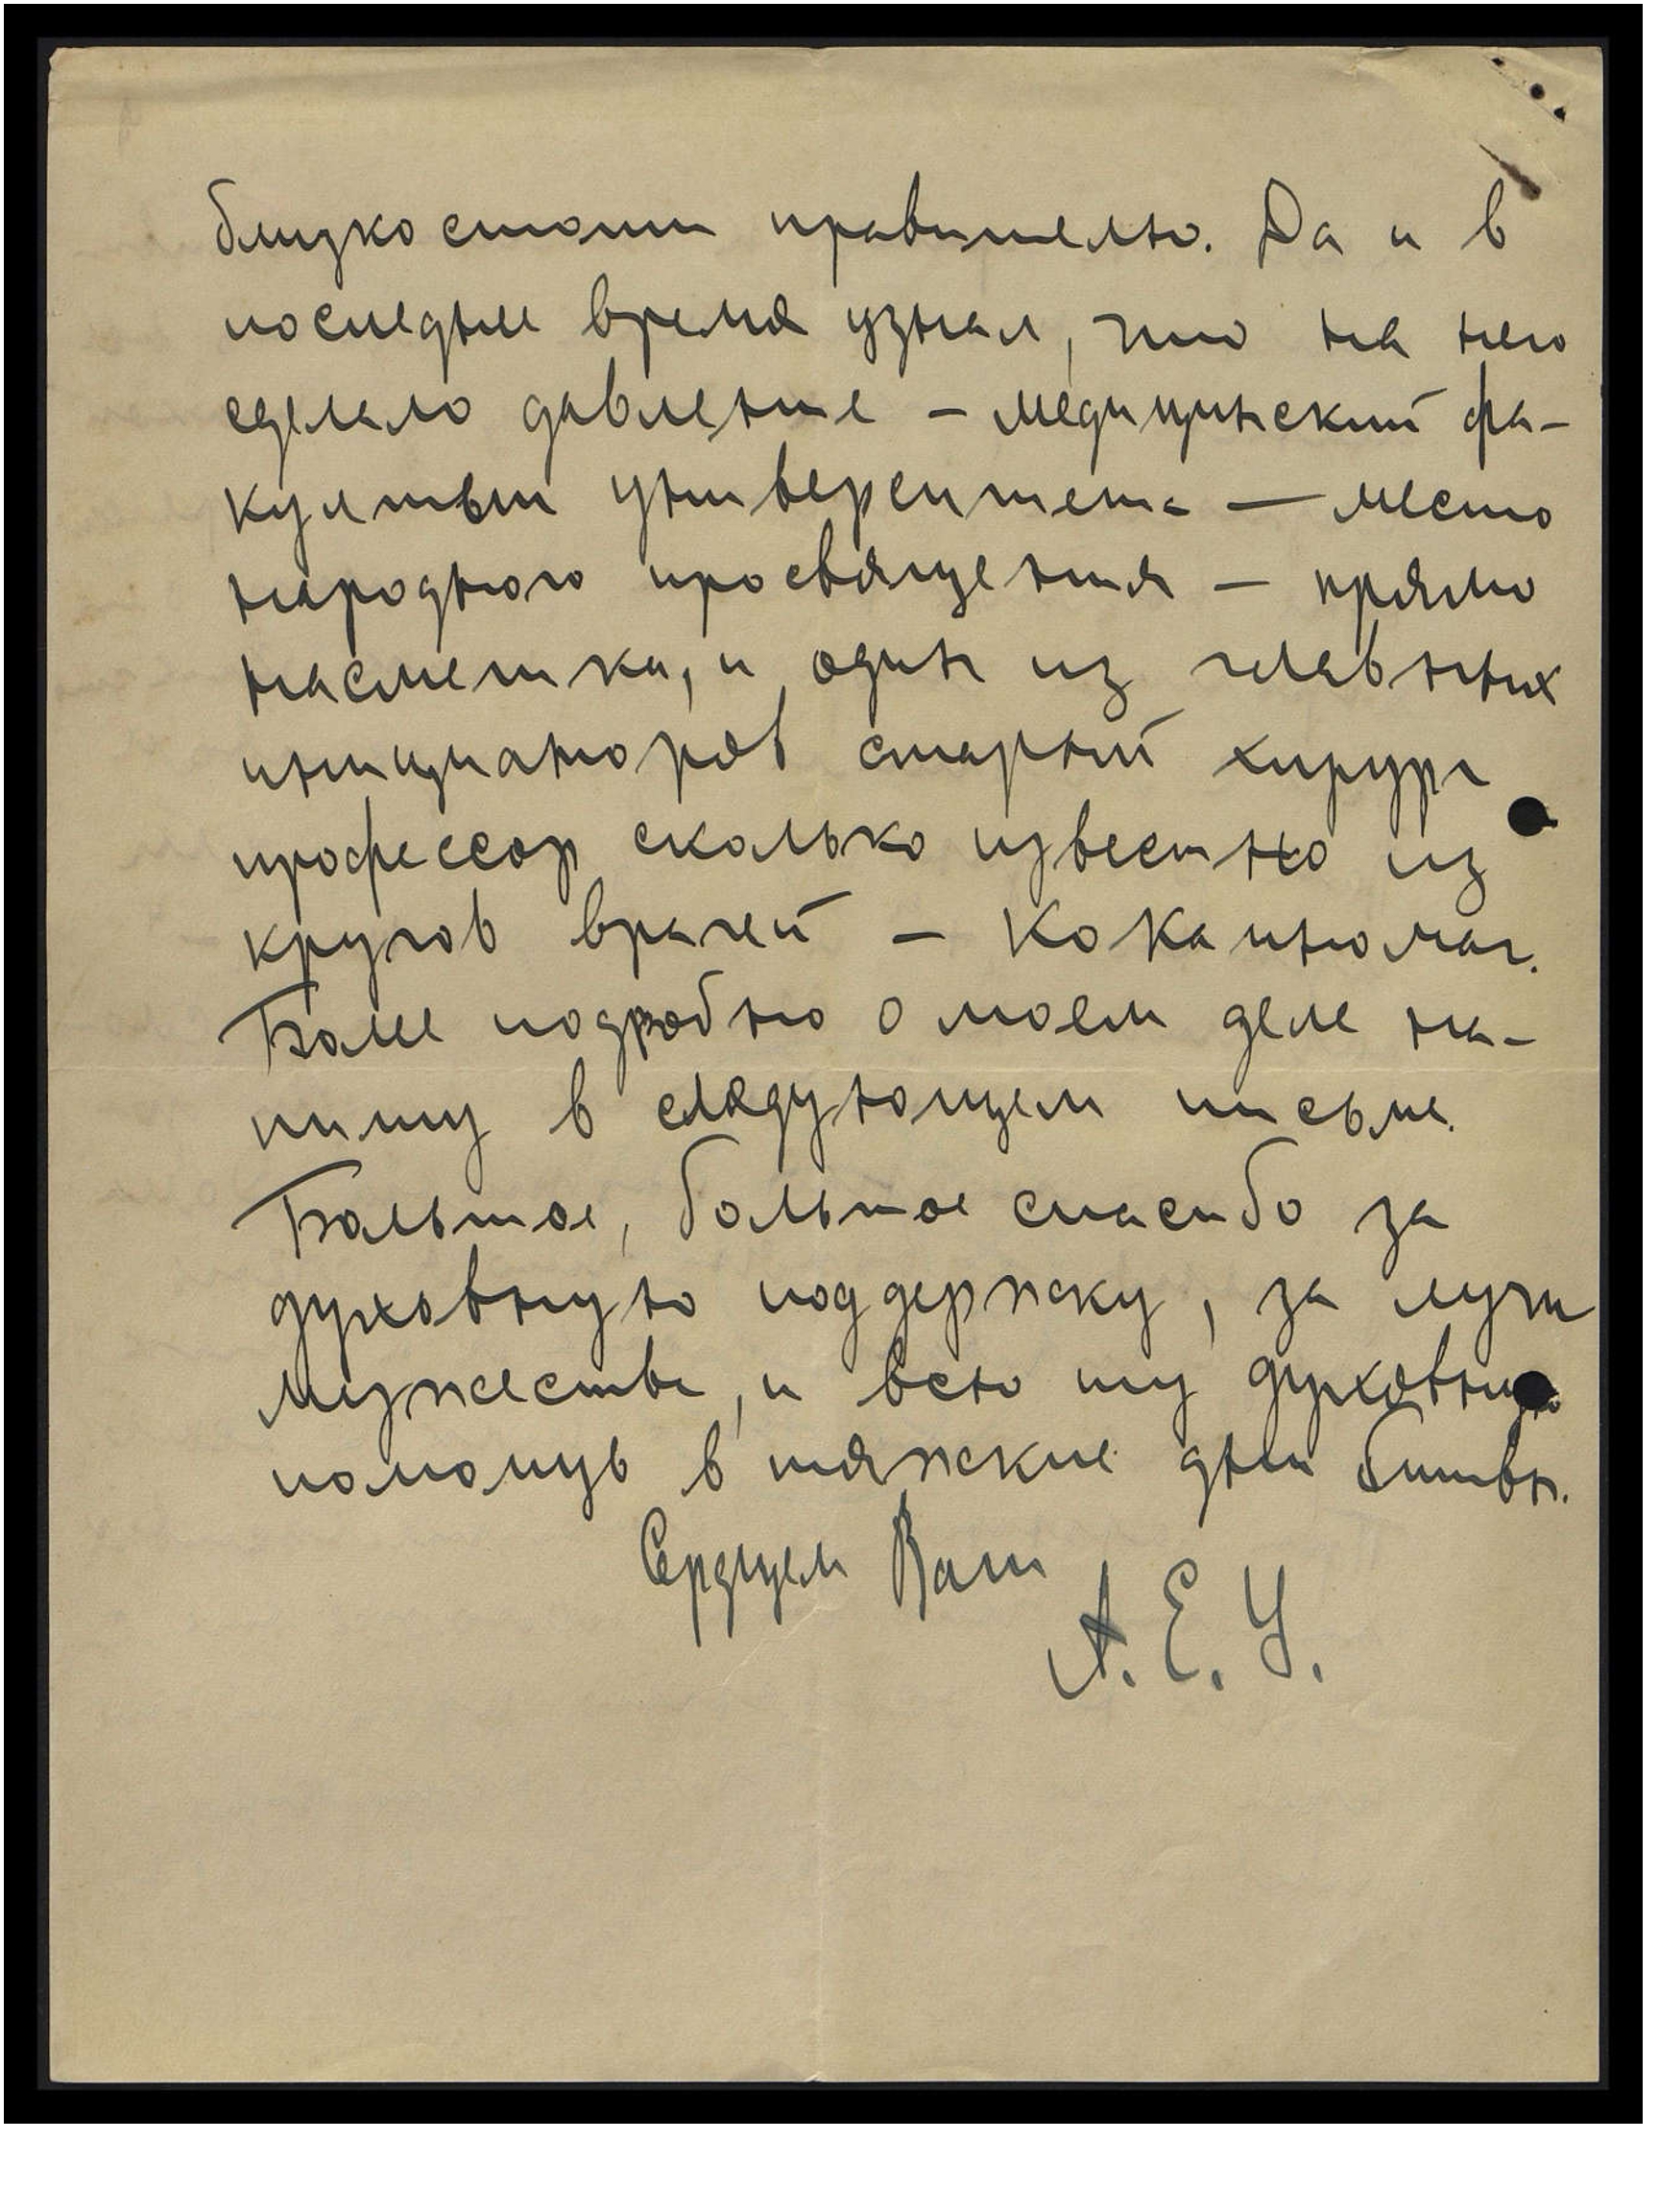 близко стоит правителю. Да и в
последнее время узнал, что на него
сделало давление – медицинский фа-
культет университета — место
народного просвящения – прямо
насмешка, и один из главных
инициаторов старый хирург
профессор сколько известно из
кругов врачей – Кокаиноман.
Более подробно о моем деле на-
пишу в следующем письме.
Большое, большое спасибо за
духовную поддержку, за лучи
мужества, и всю ту духовную
помощь в тяжские дни битвы.
Сердцем Ваш
А. Е. У.